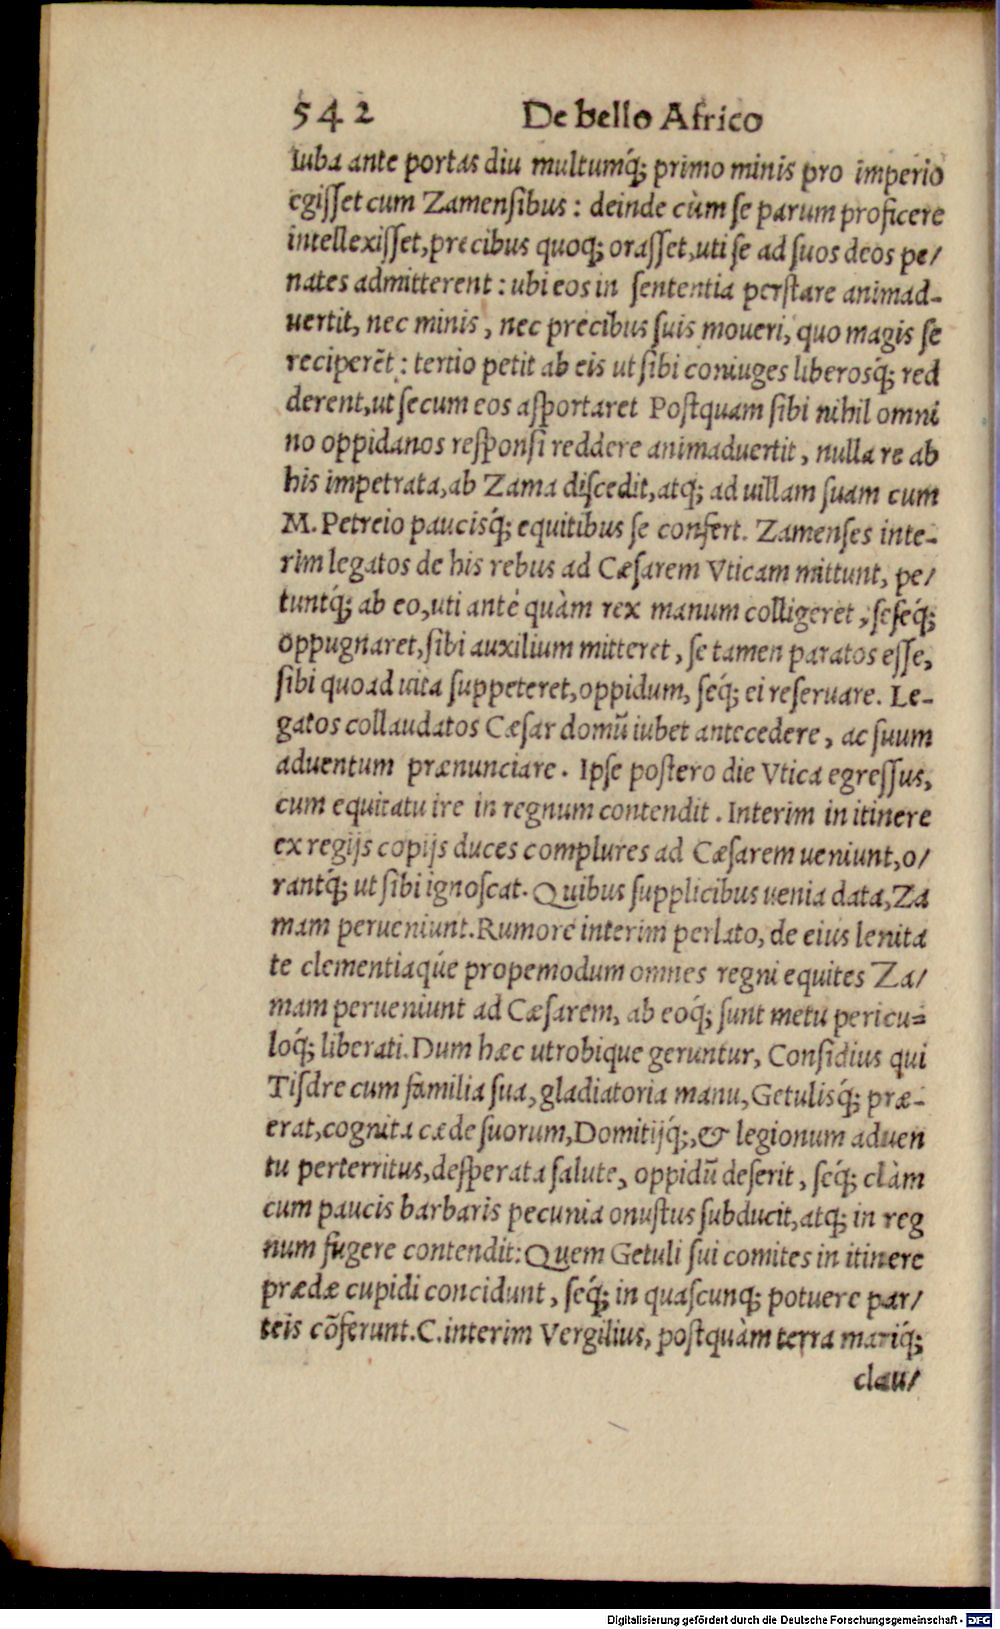 542 De bello Africo
Iuba ante portas diu multumq́; primo minis pro imperio
egisſet cum Zamenſibus : deinde cùm ſe parum proficere
intellexisſet, precibus quoq; orasſet, uti ſe ad ſuos deos pe/
nates admitterent : ubi eos in ſententia perſtare animad-
uertit, nec minis, nec precibus ſuis moueri, quo magis ſe
reciperẽt : tertio petit ab eis ut ſibi coniuges liberosq́; red
derent, ut ſecum eos aſportaret Poſtquam ſibi nihil omni
no oppidanos reſponſi reddere animaduertit, nulla re ab
his impetrata, ab Zama diſcedit, atq; ad uillam ſuam cum
M. Petreio paucisq́; equitibus ſe confert. Zamenſes inte-
rim legatos de his rebus ad Cæſarem Vticam mittunt, pe/
tuntq́; ab eo, uti anté quàm rex manum colligeret, ſeſeq́;
oppugnaret, ſibi auxilium mitteret, ſe tamen paratos esſe,
ſibi quoad uita ſuppeteret, oppidum, ſeq́; ei reſeruare. Le-
gatos collaudatos Cæſar domũ iubet antecedere, ac ſuum
aduentum prænunciare. Ipſe poſtero die Vtica egresſus,
cum equitatu ire in regnum contendit. Interim in itinere
ex regijs copijs duces complures ad Cæſarem ueniunt, o/
rantq́; ut ſibi ignoſcat. Quibus ſupplicibus uenia data, Za
mam perueniunt. Rumore interim perlato, de eius lenita
te clementiaqúe propemodum omnes regni equites Za/
mam perueniunt ad Cæſarem, ab eoq́; ſunt metu pericu-
loq́; liberati. Dum hæc utrobique geruntur, Conſidius qui
Tiſdre cum familia ſua, gladiatoria manu, Getulisq́; præ-
erat, cognita cæde ſuorum, Domitijq́;, & legionum aduen
tu perterritus, deſperata ſalute, oppidũ deſerit, ſeq́; clàm
cum paucis barbaris pecunia onuſtus ſubducit, atq; in reg
num fugere contendit: Quem Getuli ſui comites in itinere
prædæ cupidi concidunt, ſeq́; in quaſcunq; potuere par/
teis cõferunt. C. interim Vergilius, poſtquàm terra mariq́;
clau/
Digitalisierung gefördert durch die Deutsche Forschungsgemeinschaft - DFG